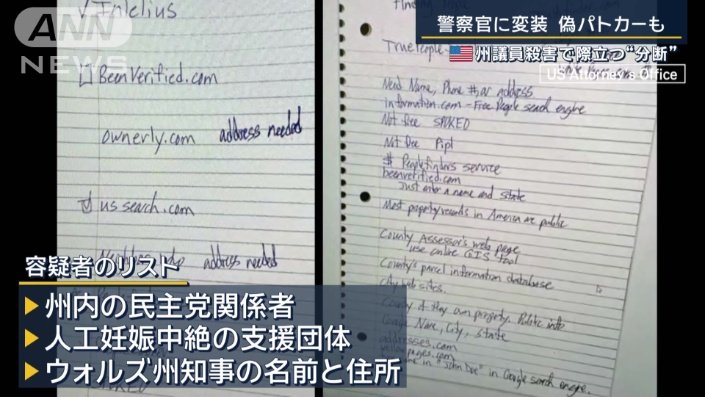 ANN
NEWS
警察官に変装 偽パトカーも
州議員殺害で際立つ“分断”
US Attorney's Office
Intelius
BeenVerified.com
ownerly.com address needed
ussearch.com
address needed
True People
Need Name, Phone #, or address
information.com - Free People search engine
Not Dee SPOKEO
Not Dee Pipl
# Peoplefinders service
beenverified.com
Just enter a name and state
Most property records in America are public
County Assessor's web page
use online GIS tool
County's parcel information database
City web sites.
County if they own property. Public info
Google Name, City, State
addresses.com
yellowpages.com
in "John Doe" in Google search engine.
容疑者のリスト
▶州内の民主党関係者
▶人工妊娠中絶の支援団体
▶ウォルズ州知事の名前と住所